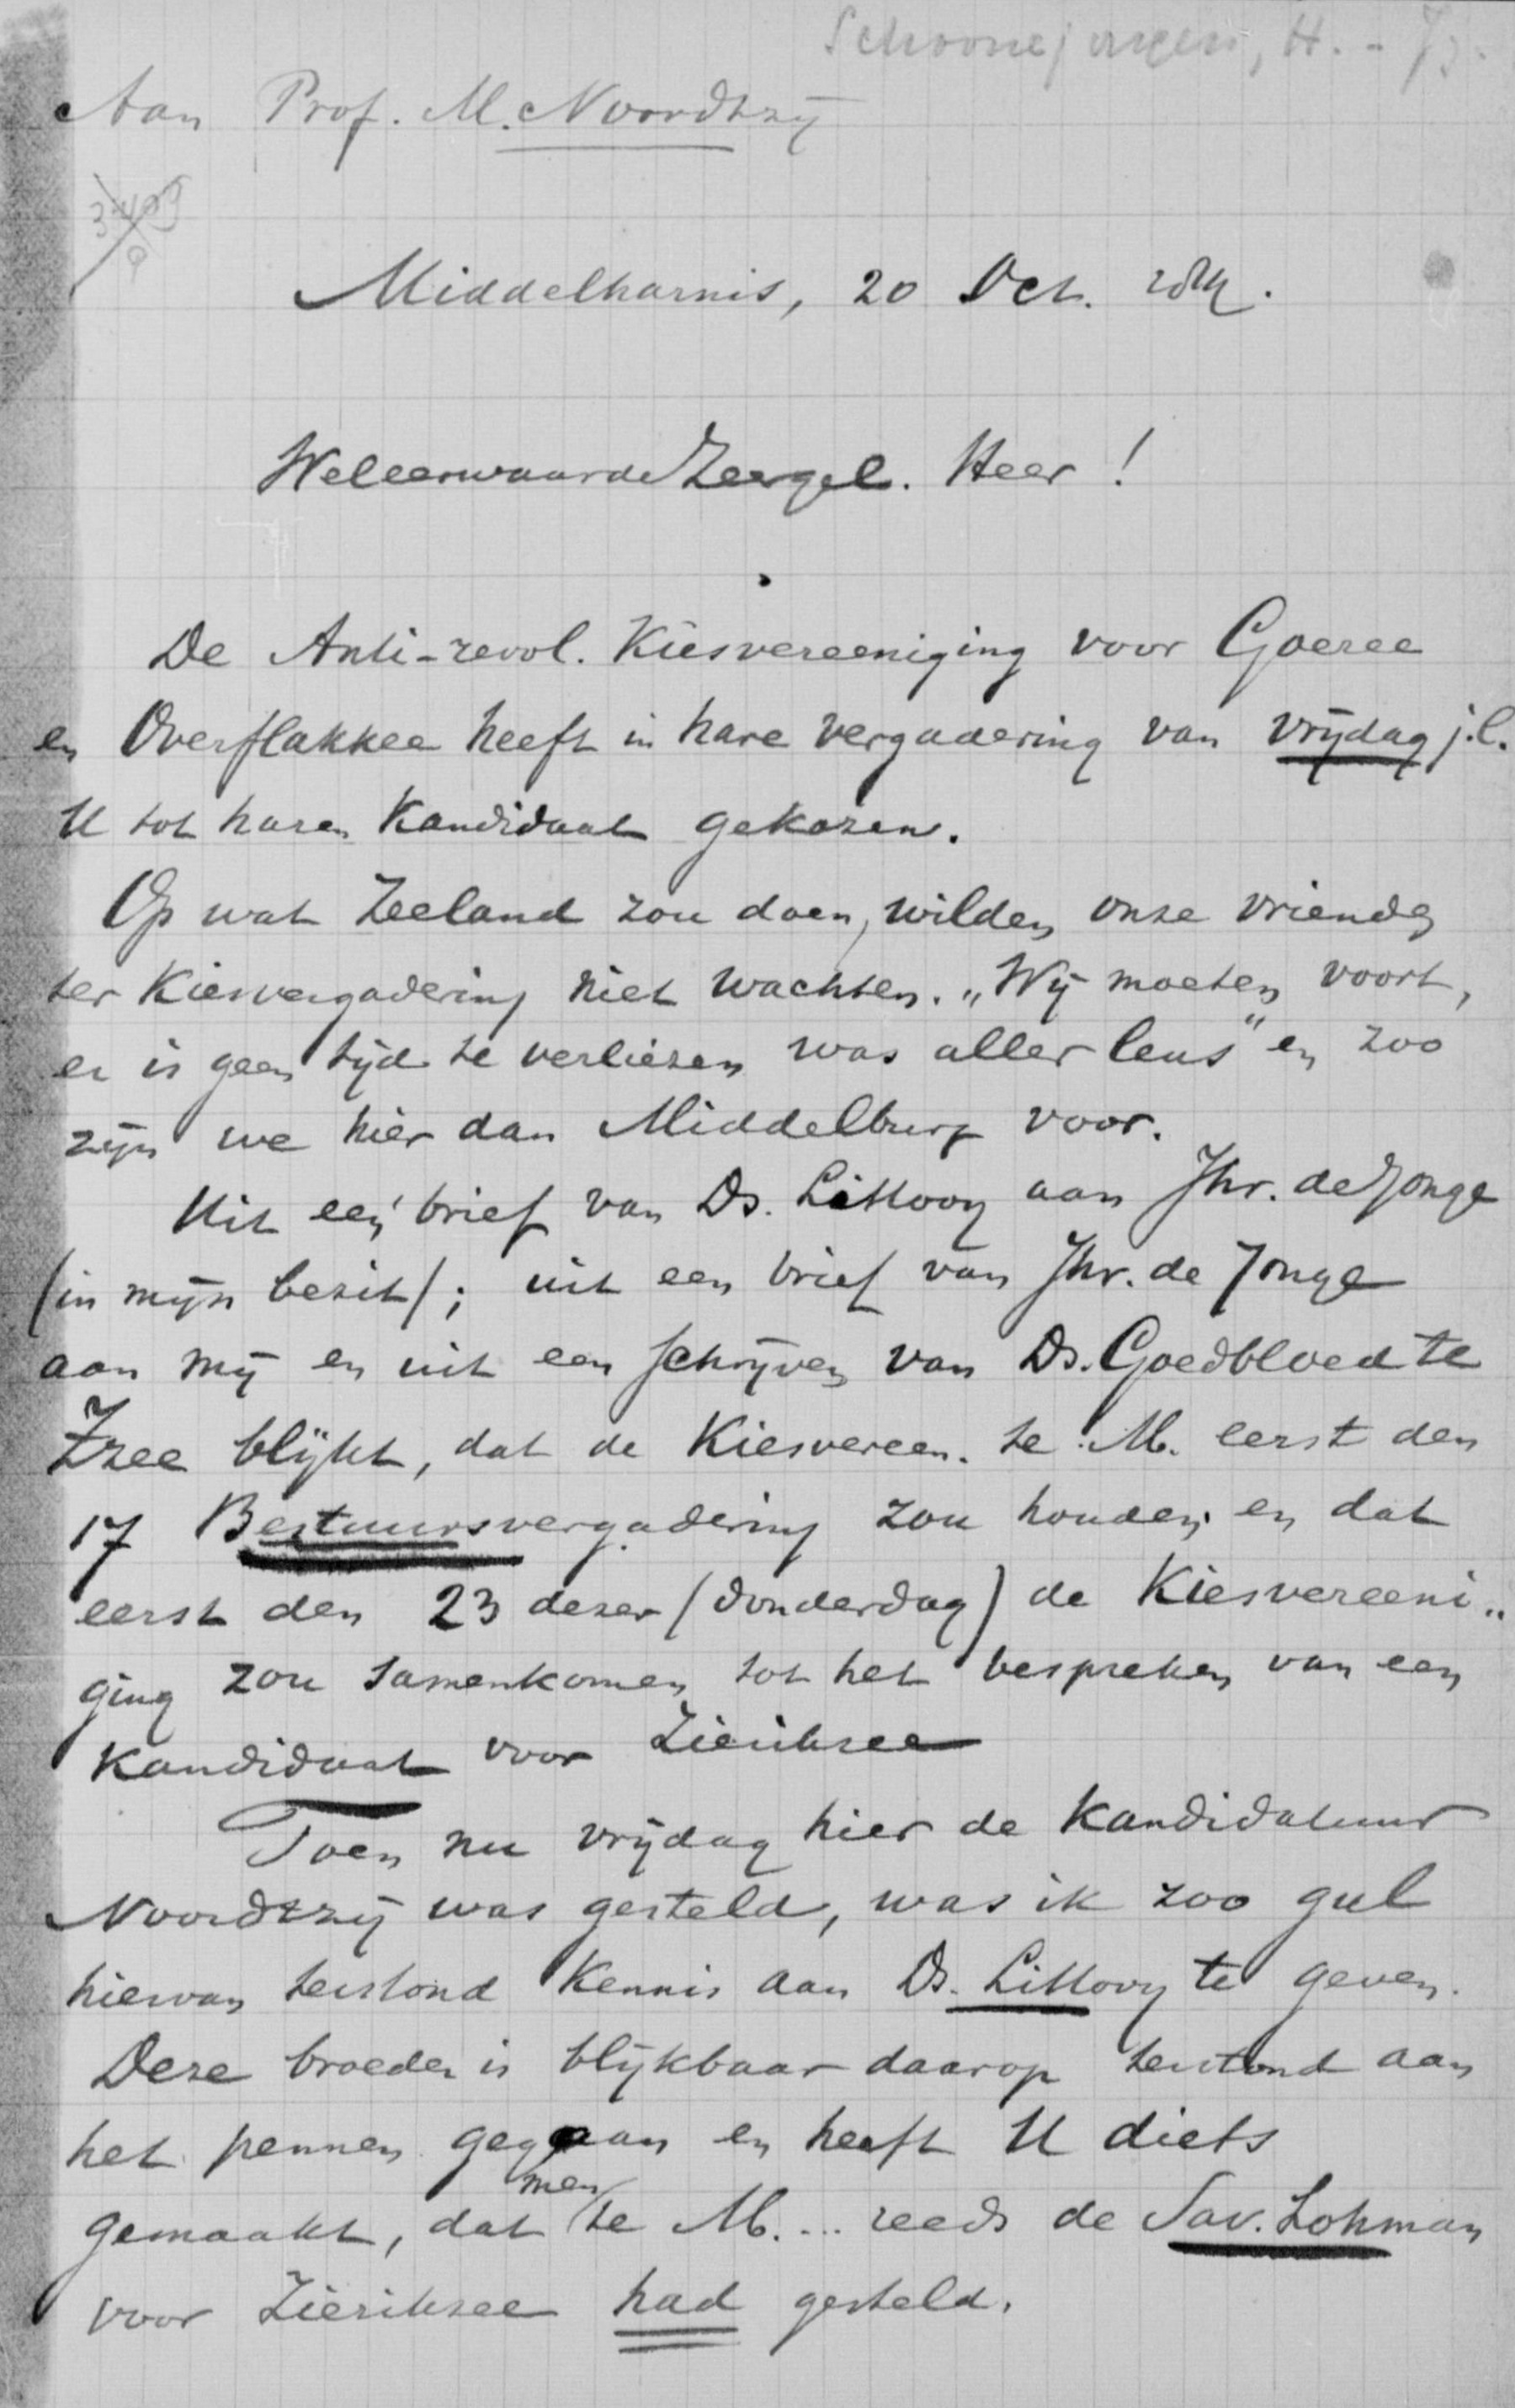 Schoonejongen, H. -
Aan Prof. M. Noordtzij
Middelharnis, 20 Oct.
WeleerwaardeZeergel. Heer!
De Anti-revol. Kiesvereeniging voor Goeree
en Overflakkee heeft in hare vergadering van vrijdag j.l.
U tot haren Kandidaat gekozen.
Op wat Zeeland zou doen, wilden onze vrienden
ter Kiesvergadering niet wachten. „Wij moeten voort,
er is geen tijd te verliezen was aller leus" en zoo
zijn we hier dan Middelburg voor.
Uit een brief van Ds. Littooy aan Jhr. de Jonge
(in mijn bezit); uit een brief van Jhr. de Jonge
aan mij en uit een schrijven van Ds. Goedbloed te
Zzee blijkt, dat de Kiesvereen. te M. eerst den
17 Bestuursvergadering zou houden en dat
eerst den 23 dezer (donderdag) de Kiesvereeni„
ging zou samenkomen tot het bespreken van een
Kandidaat voor Zierikzee
Toen nu vrijdag hier de Kandidatuur
Noordtzij was gesteld, was ik zoo gul
hiervan terstond kennis aan Ds. Littooy te geven.
Deze broeder is blijkbaar daarop terstond aan
het pennen gegaan en heeft U diets
gemaakt, dat men te M. ... reeds de Sav. Lohman
voor Zierikzee had gesteld.